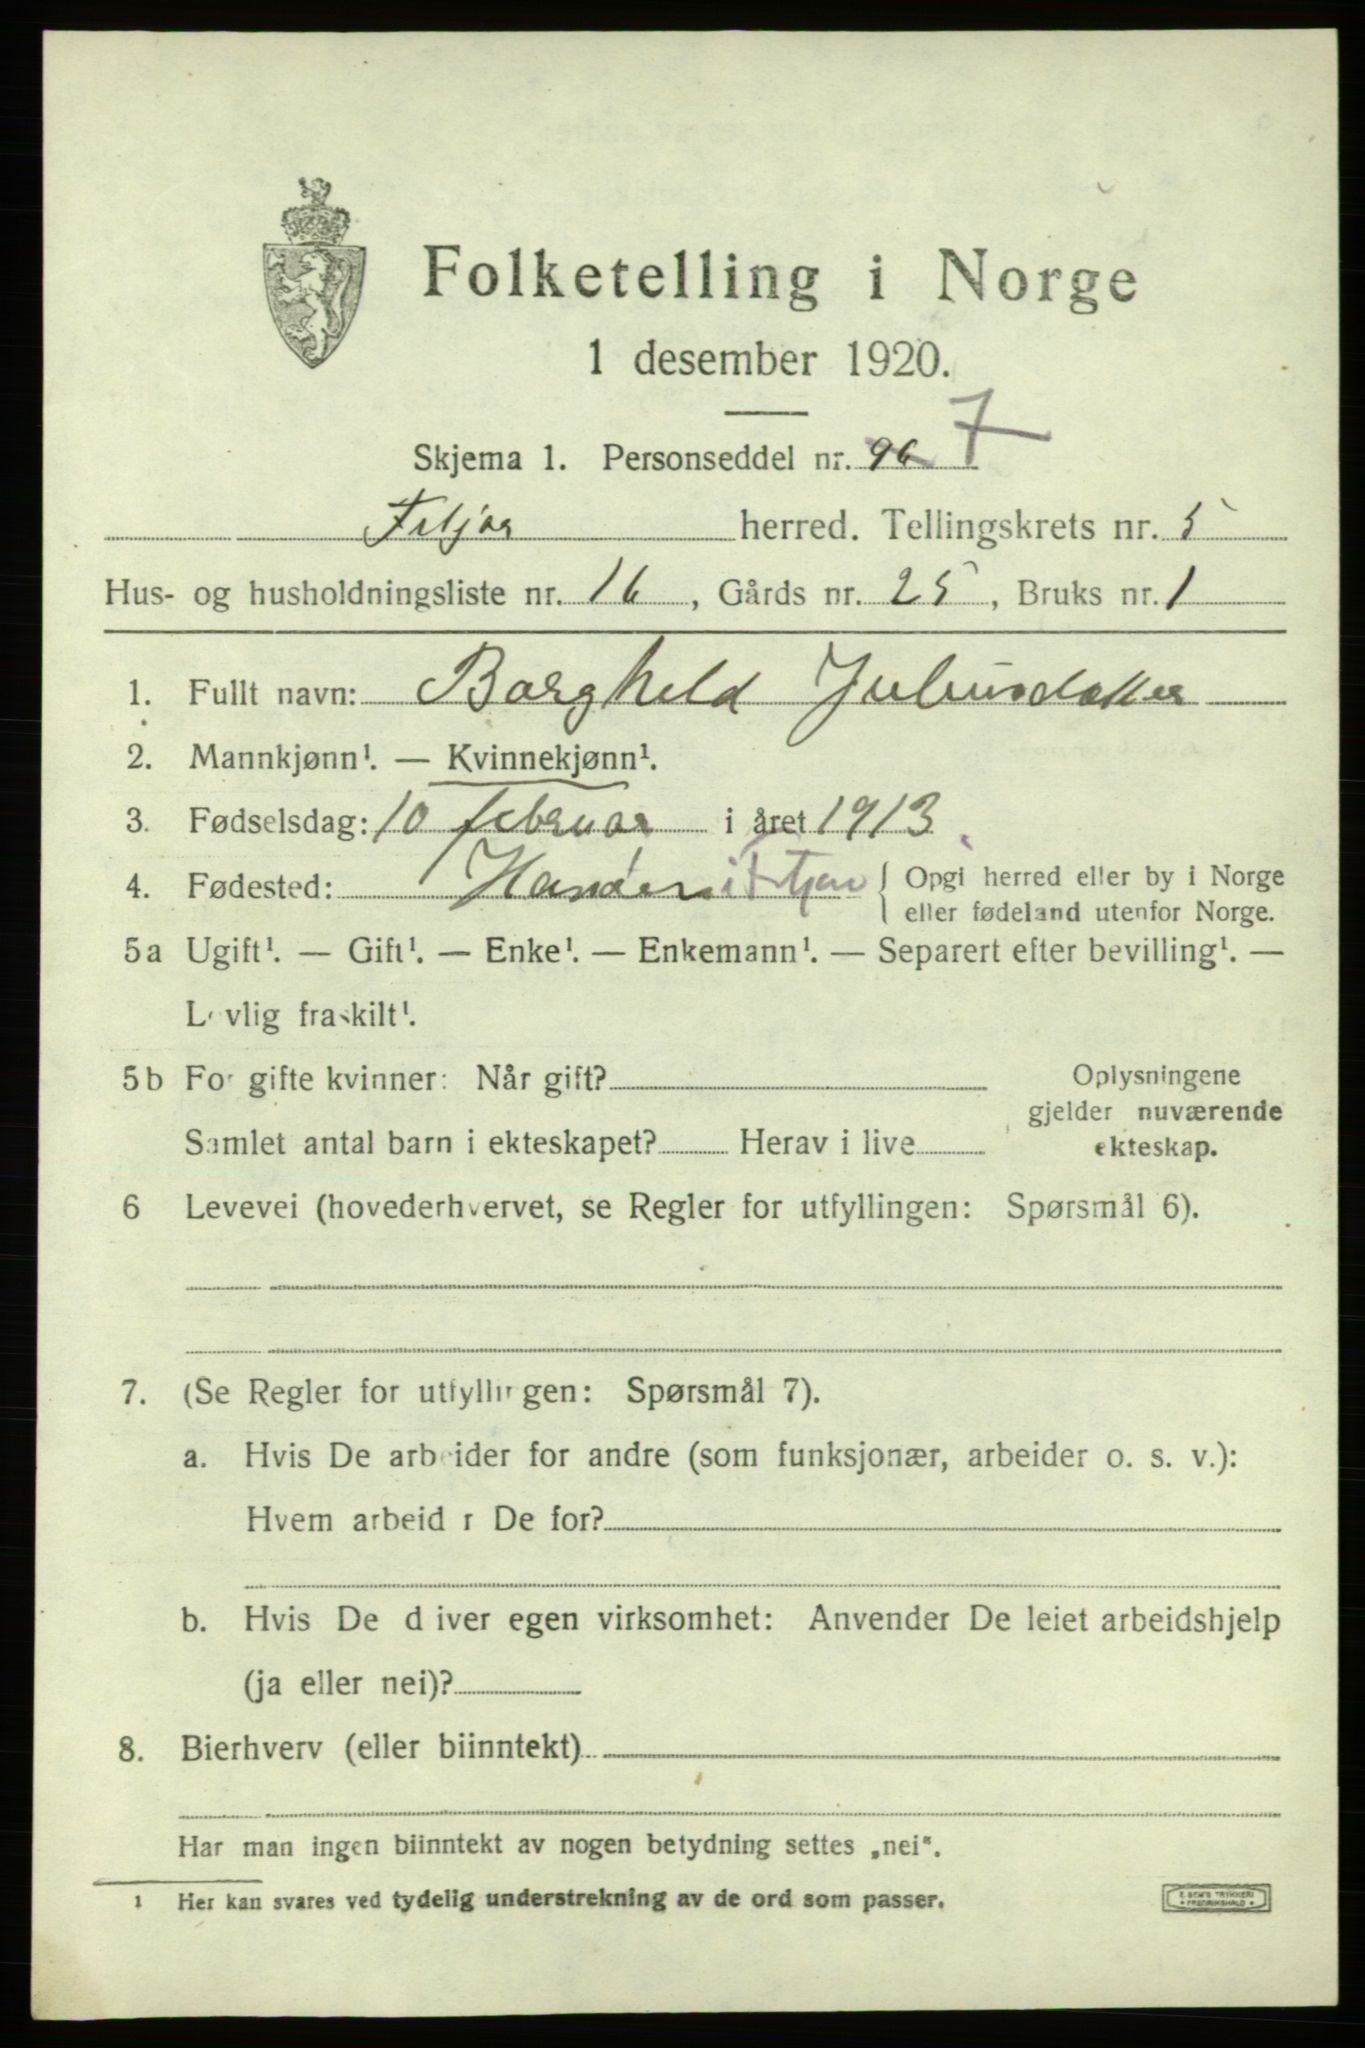 Folketelling i Norge
1 desember 1920.
Skjema 1. Personseddel nr. 96 7
Fitjar herred. Tellingskrets nr. 5
Hus- og husholdningsliste nr. 16, Gårds nr. 25, Bruks nr. 1
1. Fullt navn: Borghild Juliusdatter
2. Mannkjønn¹. — Kvinnekjønn¹.
3. Fødselsdag: 10 februar i året 1913
4. Fødested: i Fitjar { Opgi herred eller by i Norge
eller fødeland utenfor Norge.
5a Ugift¹. — Gift¹. — Enke¹. — Enkemann¹. — Separert efter bevilling¹. —
Lovlig fraskilt¹.
5b For gifte kvinner: Når gift? Oplysningene
gjelder nuværende
Samlet antal barn i ekteskapet? Herav i live ekteskap.
6 Levevei (hovederhvervet, se Regler for utfyllingen: Spørsmål 6).
7. (Se Regler for utfyllingen: Spørsmål 7).
a. Hvis De arbeider for andre (som funksjonær, arbeider o. s. v.):
Hvem arbeider De for?
b. Hvis De driver egen virksomhet: Anvender De leiet arbeidshjelp
(ja eller nei)?
8. Bierhverv (eller biinntekt)
Har man ingen biinntekt av nogen betydning settes „nei".
1 Her kan svares ved tydelig understrekning av de ord som passer.